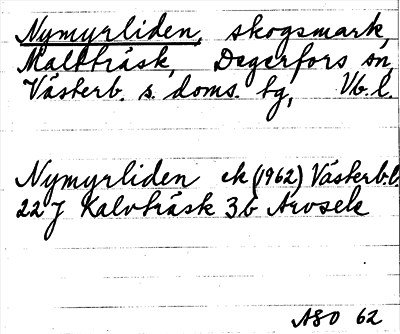 Nymyrliden, skogsmark,
Maltträsk, Degerfors sn,
Västerb. s. doms. tg, Vb. l.
Nymyrliden ek (1962) Västerb.l.
22 J Kalvträsk 3b Avosek
ASO 62